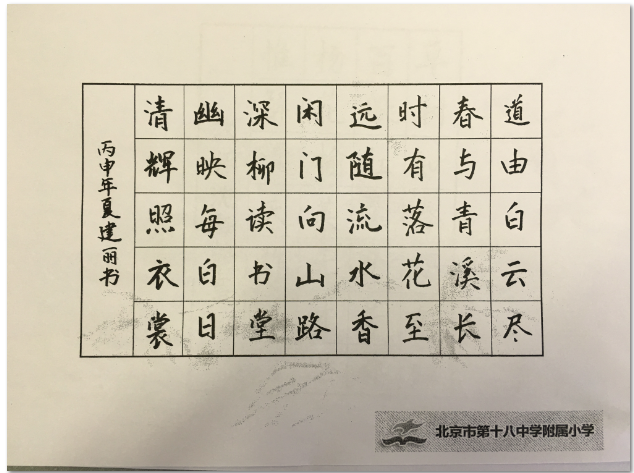 道由白云尽
春与青溪长
时有落花至
远随流水香
闲门向山路
深柳读书堂
幽映每白日
清辉照衣裳
丙申年夏建丽书
北京市第十八中学附属小学